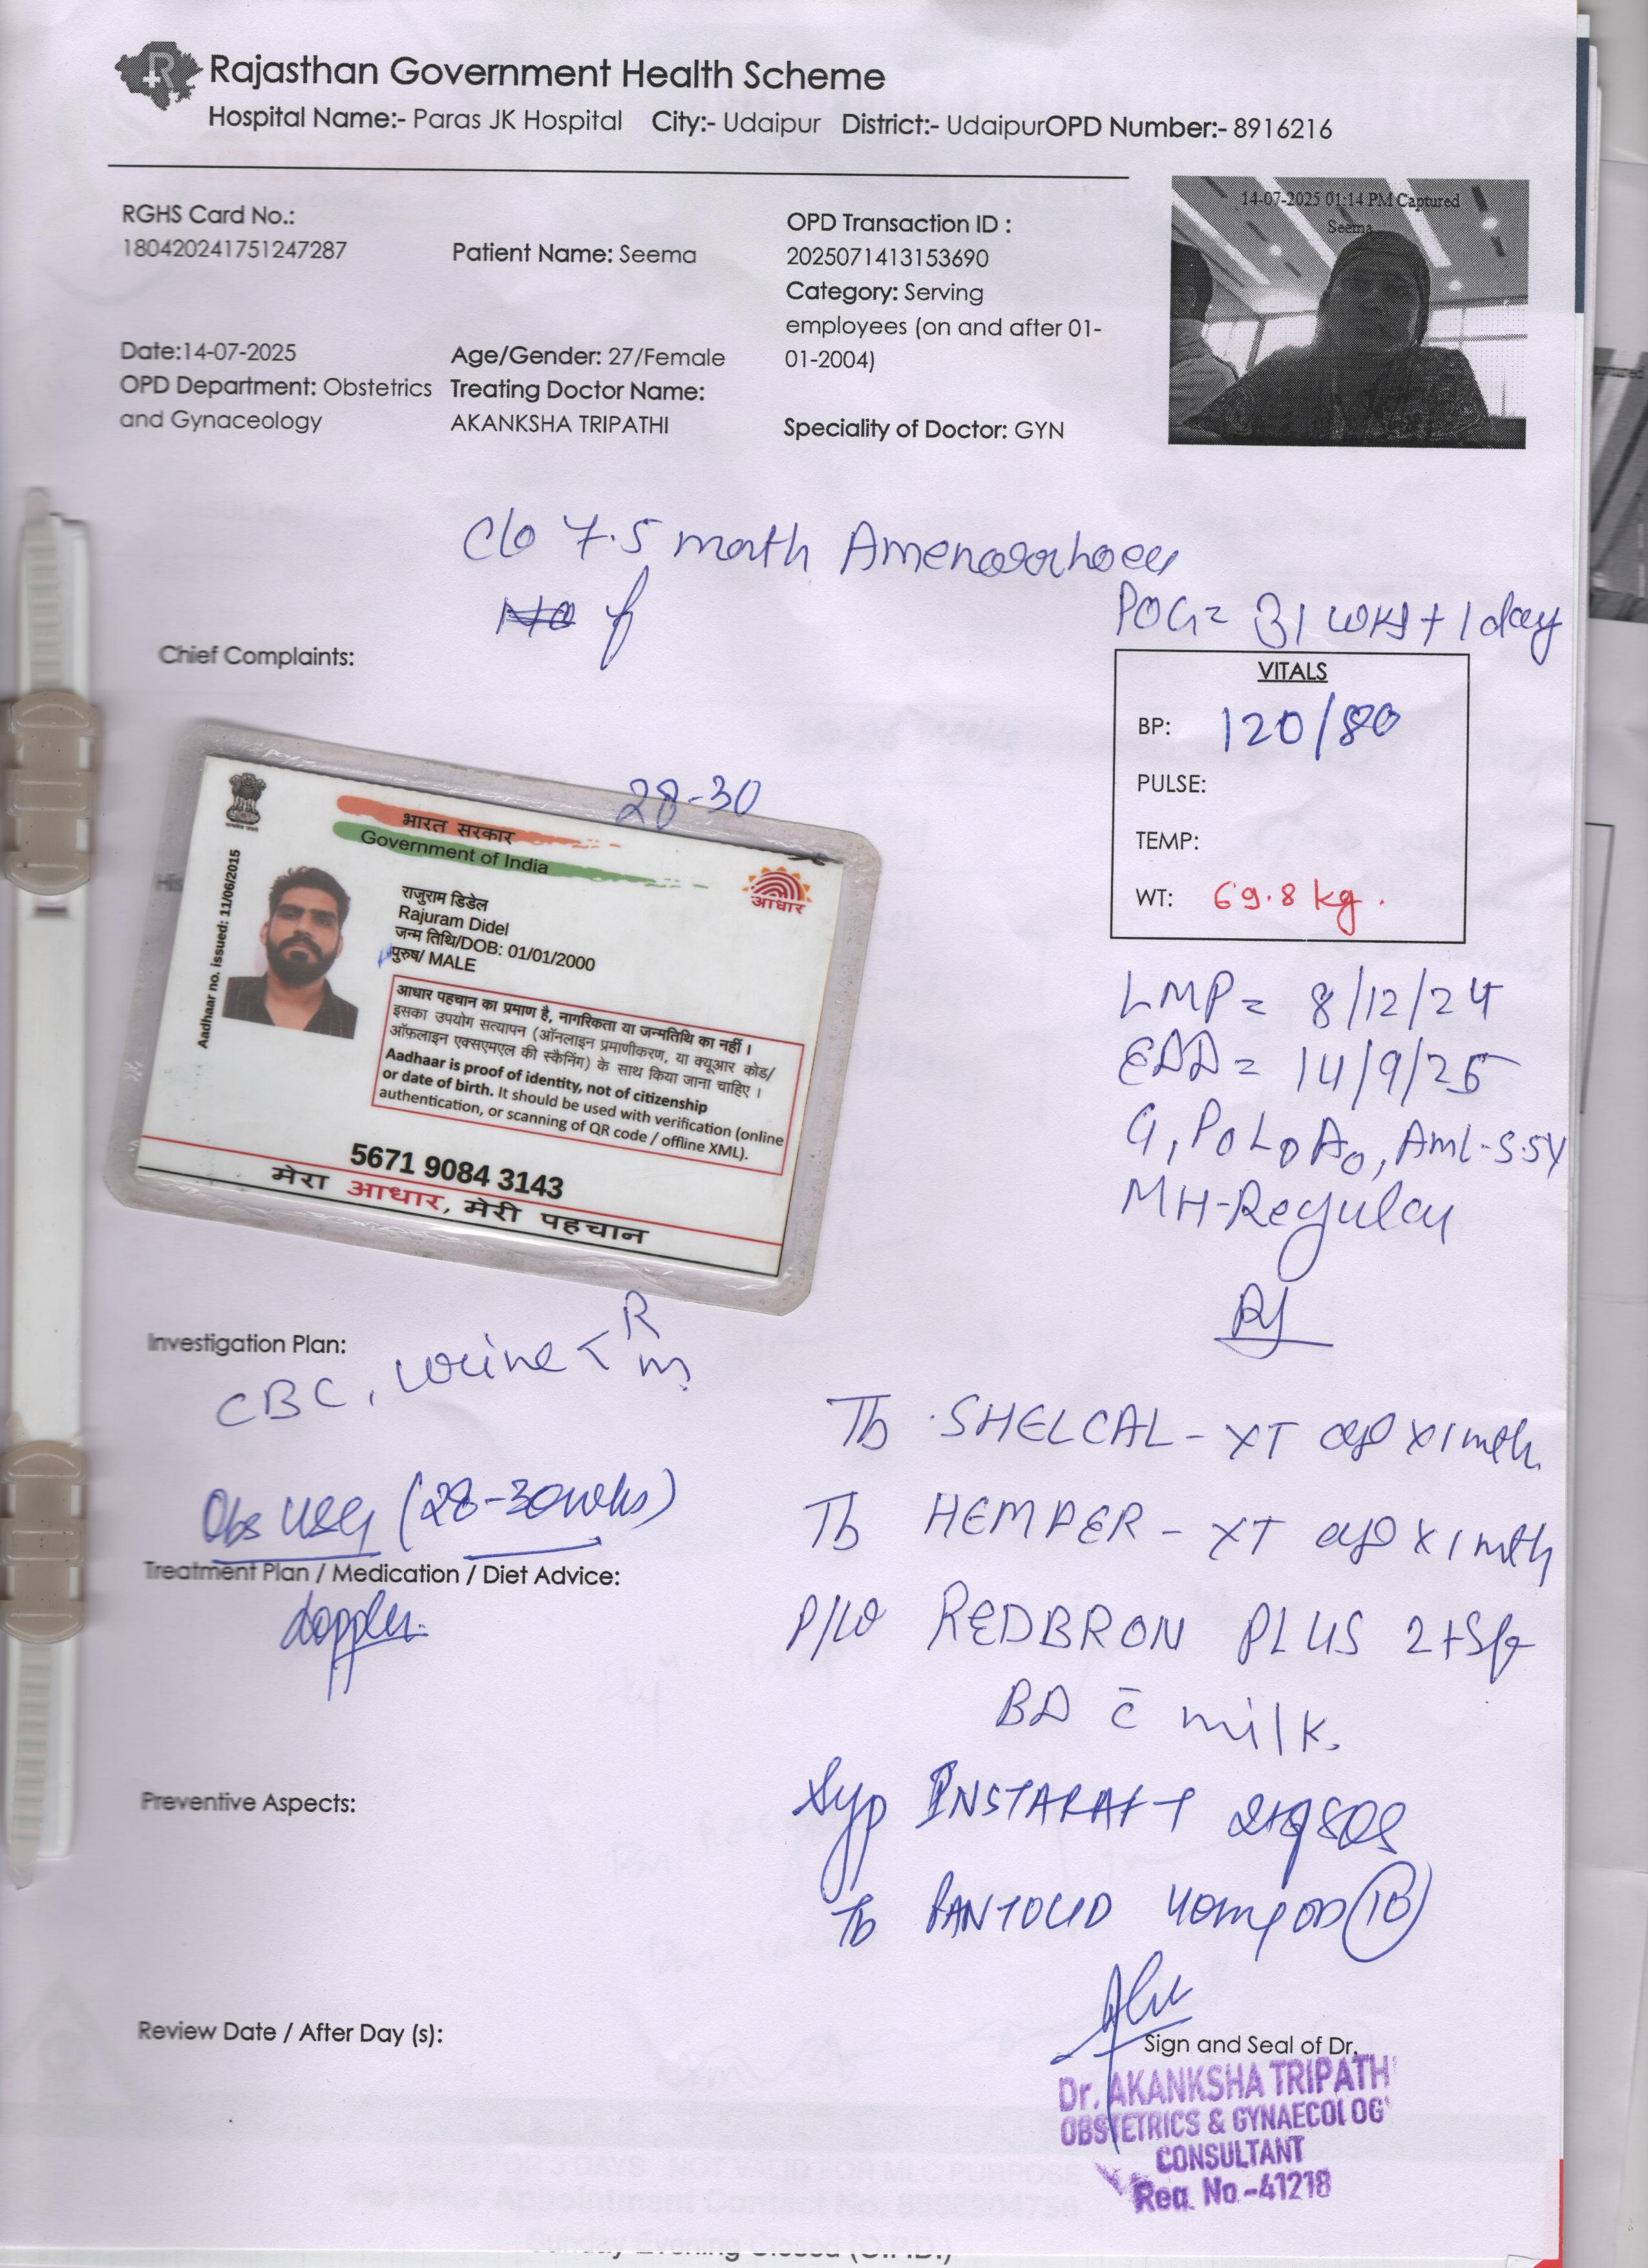 Rajasthan Government Health Scheme
Hospital Name:- Paras JK Hospital City:- Udaipur District:- UdaipurOPD Number:- 8916216
RGHS Card No.:
180420241751247287
Patient Name: Seema
OPD Transaction ID :
2025071413153690
Category: Serving
employees (on and after 01-
01-2004)
14-07-2025 01:14 PM Captured
Seema
Date:14-07-2025
Age/Gender: 27/Female
OPD Department: Obstetrics
and Gynaceology
Treating Doctor Name:
AKANKSHA TRIPATHI
Speciality of Doctor: GYN
C/o 7.5 month Amenorrhoea
POG= 31 wks + 1 day
Chief Complaints:
VITALS
BP: 120/80
PULSE:
TEMP:
WT: 69.8 kg.
28-30
भारत सरकार
Government of India
आधार
Aadhaar no. issued: 11/06/2015
राजुराम डिडेल
Rajuram Didel
जन्म तिथि/DOB: 01/01/2000
पुरुष/ MALE
आधार पहचान का प्रमाण है, नागरिकता या जन्मतिथि का नहीं ।
इसका उपयोग सत्यापन (ऑनलाइन प्रमाणीकरण, या क्यूआर कोड/
ऑफ़लाइन एक्सएमएल की स्कैनिंग) के साथ किया जाना चाहिए ।
Aadhaar is proof of identity, not of citizenship
or date of birth. It should be used with verification (online
authentication, or scanning of QR code / offline XML).
5671 9084 3143
मेरा आधार, मेरी पहचान
LMP= 8/12/24
EDD= 14/9/25
G1P0L0A0, Aml-5.5Y
MH-Regular
Investigation Plan:
CBC, Urine < R
m
Obs USG (28-30wks)
Treatment Plan / Medication / Diet Advice:
doppler
Rx
Tb SHELCAL-XT x 1 mth
Tb HEMPER-XT x 1 mth
REDBRON PLUS 2tsf
BD c̄ milk.
Syp INSTARAFT 2tsf SOS
Tb PANTOCID 40mg OD 10
Preventive Aspects:
Review Date / After Day (s):
Sign and Seal of Dr.
Dr. AKANKSHA TRIPATH
OBSTETRICS & GYNAECOLOG
CONSULTANT
Reg. No.-41218
Sunday Evening Closed (O.P.D.)